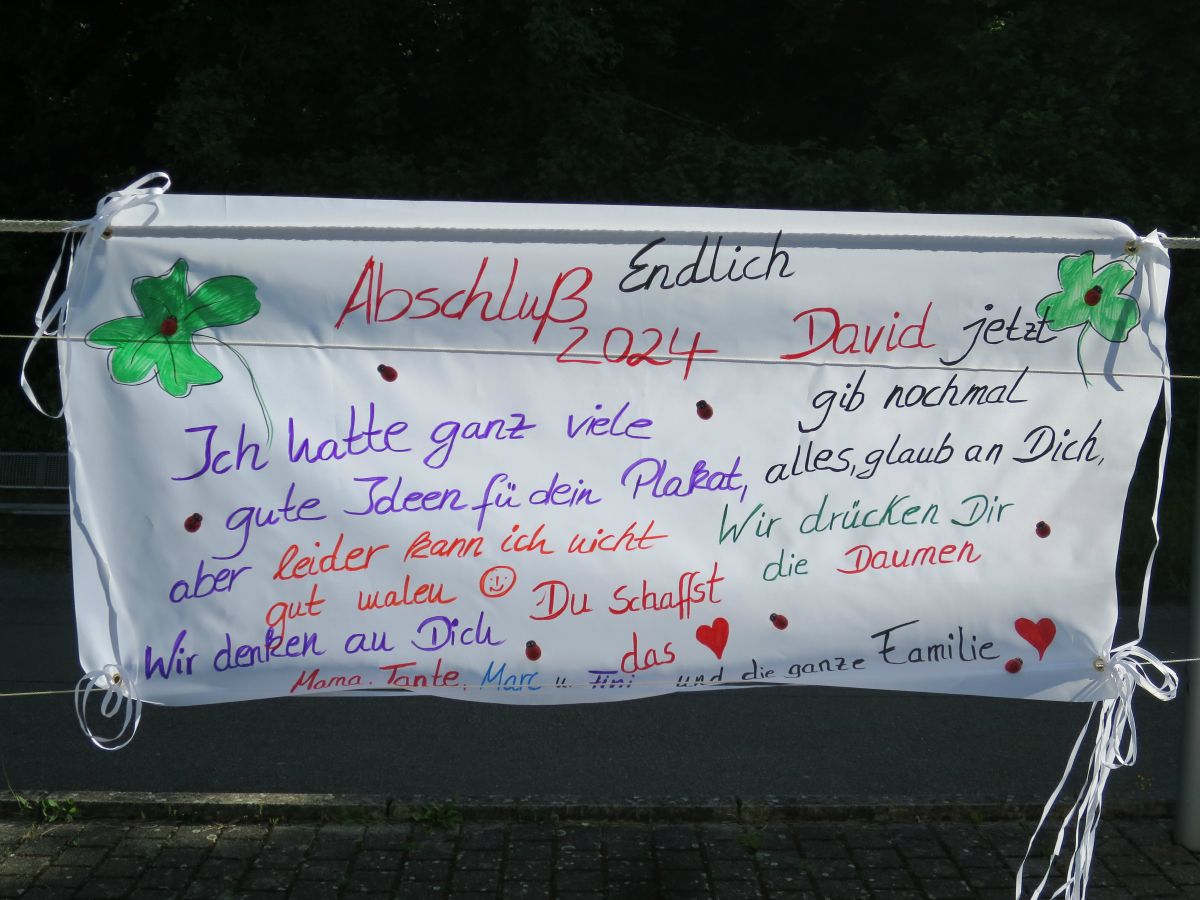 Endlich
Abschluß
2024
David jetzt
gib nochmal
alles, glaub an Dich,
Ich hatte ganz viele
gute Ideen fü dein Plakat,
aber leider kann ich nicht
gut malen
Wir drücken Dir
die Daumen
Du schaffst
das
Wir denken an Dich
Mama, Tante, Marc u. Tini und die ganze Familie